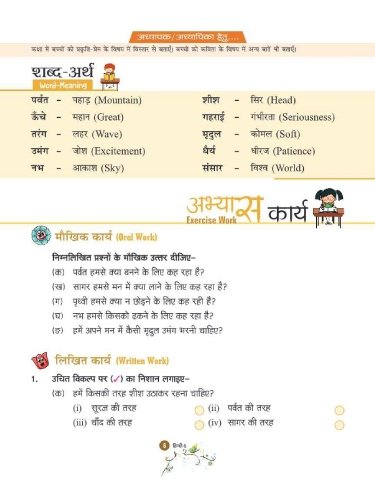 अध्यापक/अध्यापिका हेतु....
कक्षा में बच्चों को प्रकृति-प्रेम के विषय में विस्तार से बताएँ। बच्चों को कविता के विषय में अन्य बातें भी बताएँ।
शब्द-अर्थ
Word-Meaning
पर्वत - पहाड़ (Mountain) शीश - सिर (Head)
ऊँचे - महान (Great) गहराई - गंभीरता (Seriousness)
तरंग - लहर (Wave) मृदुल - कोमल (Soft)
उमंग - जोश (Excitement) धैर्य - धीरज (Patience)
नभ - आकाश (Sky) संसार - विश्व (World)
अभ्यास कार्य
Exercise Work
मौखिक कार्य (Oral Work)
निम्नलिखित प्रश्नों के मौखिक उत्तर दीजिए-
(क) पर्वत हमसे क्या बनने के लिए कह रहा है?
(ख) सागर हमसे मन में क्या लाने के लिए कह रहा है?
(ग) पृथ्वी हमसे क्या न छोड़ने के लिए कह रही है?
(घ) नभ हमसे किसको ढकने के लिए कह रहा है?
(ङ) हमें अपने मन में कैसी मृदुल उमंग भरनी चाहिए?
लिखित कार्य (Written Work)
1. उचित विकल्प पर (✓) का निशान लगाइए-
(क) हमें किसकी तरह शीश उठाकर रहना चाहिए?
(i) सूरज की तरह (ii) पर्वत की तरह
(iii) चाँद की तरह (iv) सागर की तरह
6 हिन्दी-5